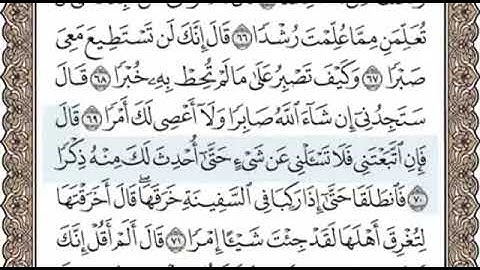 تُعَلِّمَنِ مِمَّا عُلِّمْتَ رُشْدًا ٦٦ قَالَ إِنَّكَ لَن تَسْتَطِيعَ مَعِيَ
صَبْرًا ٦٧ وَكَيْفَ تَصْبِرُ عَلَىٰ مَا لَمْ تُحِطْ بِهِۦ خُبْرًا ٦٨ قَالَ
سَتَجِدُنِىٓ إِن شَآءَ ٱللَّهُ صَابِرًا وَلَآ أَعْصِى لَكَ أَمْرًا ٦٩ قَالَ
فَإِنِ ٱتَّبَعْتَنِى فَلَا تَسْـَٔلْنِى عَن شَىْءٍ حَتَّىٰٓ أُحْدِثَ لَكَ مِنْهُ ذِكْرًا
٧٠ فَٱنطَلَقَا حَتَّىٰٓ إِذَا رَكِبَا فِى ٱلسَّفِينَةِ خَرَقَهَا ۖ قَالَ أَخَرَقْتَهَا
لِتُغْرِقَ أَهْلَهَا لَقَدْ جِئْتَ شَيْـًٔا إِمْرًا ٧١ قَالَ أَلَمْ أَقُلْ إِنَّكَ